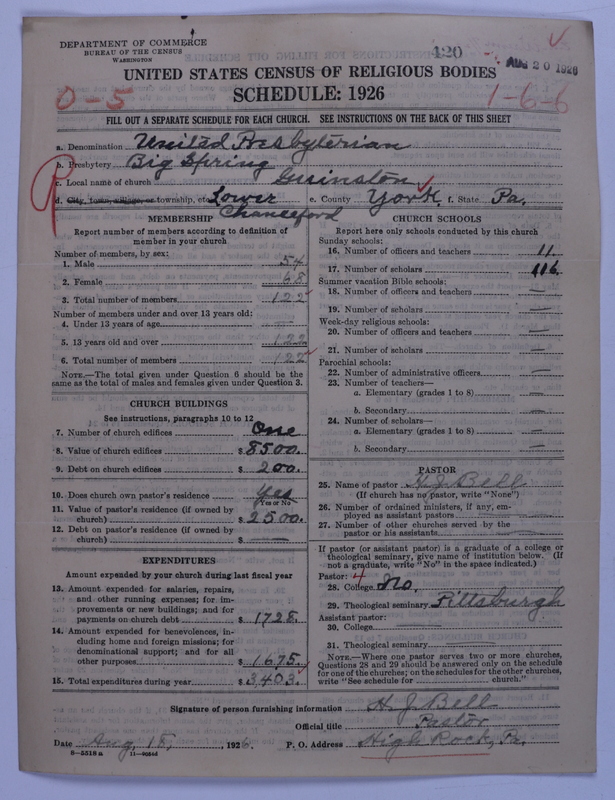 DEPARTMENT OF COMMERCE
BUREAU OF THE CENSUS
WASHINGTON
420
AUG 20 1926
UNITED STATES CENSUS OF RELIGIOUS BODIES
SCHEDULE: 1926
0-5
1-6-6
FILL OUT A SEPARATE SCHEDULE FOR EACH CHURCH. SEE INSTRUCTIONS ON THE BACK OF THIS SHEET
a. Denomination United Presbyterian
b. Presbytery Big Spring
c. Local name of church Guinston
d. City, town, village, or township, etc. Lower Chanceford e. County York f. State Pa.
R
MEMBERSHIP
Report number of members according to definition of
member in your church
Number of members, by sex:
1. Male 54
2. Female 68
3. Total number of members 122
Number of members under and over 13 years old:
4. Under 13 years of age —
5. 13 years old and over 122
6. Total number of members 122
NOTE.—The total given under Question 6 should be
same as the total of males and females given under Question 3.
CHURCH BUILDINGS
See instructions, paragraphs 10 to 12
7. Number of church edifices One
8. Value of church edifices $ 8500.
9. Debt on church edifices $ 200.
10. Does church own pastor's residence Yes
Yes or No
11. Value of pastor's residence (if owned by
church) $ 2500.
12. Debt on pastor's residence (if owned by
church) $ —
EXPENDITURES
Amount expended by your church during last fiscal year
13. Amount expended for salaries, repairs,
and other running expenses; for im-
provements or new buildings; and for
payments on church debt $ 1728.
14. Amount expended for benevolences, in-
cluding home and foreign missions; for
denominational support; and for all
other purposes $ 1675.
15. Total expenditures during year $ 3,403.
CHURCH SCHOOLS
Report here only schools conducted by this church
Sunday schools:
16. Number of officers and teachers 11
17. Number of scholars 116
Summer vacation Bible schools:
18. Number of officers and teachers —
19. Number of scholars —
Week-day religious schools:
20. Number of officers and teachers —
21. Number of scholars —
Parochial schools:
22. Number of administrative officers —
23. Number of teachers—
a. Elementary (grades 1 to 8) —
b. Secondary —
24. Number of scholars—
a. Elementary (grades 1 to 8) —
b. Secondary —
PASTOR
25. Name of pastor H. J. Bell
(If church has no pastor, write "None")
26. Number of ordained ministers, if any, em-
ployed as assistant pastors
27. Number of other churches served by the
pastor or his assistants
If pastor (or assistant pastor) is a graduate of a college or
theological seminary, give name of institution below. (If
not a graduate, write "No" in the space indicated.)
Pastor: 4
28. College No.
29. Theological seminary Pittsburgh
Assistant pastor:
30. College
31. Theological seminary
NOTE.—Where one pastor serves two or more churches,
Questions 28 and 29 should be answered only on the schedule
for one of the churches; on the schedules for the other churches,
write "See schedule for church."
Signature of person furnishing information H. J. Bell
Official title Pastor
Date Aug. 18, 1926. P. O. Address High Rock, Pa.
8-5518a